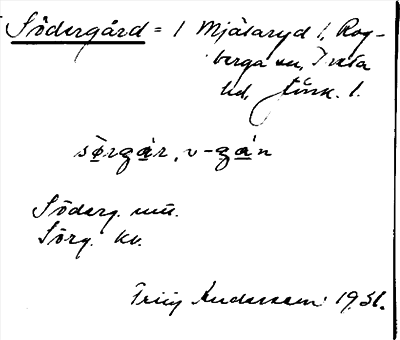 Södergård = 1 Mjälaryd 1, Rog-
berga sn, Tveta
hd, Jönk. l.
sörgår, v -gån
Söderg. uu.
Sörg. kv.
Andersson 1931.